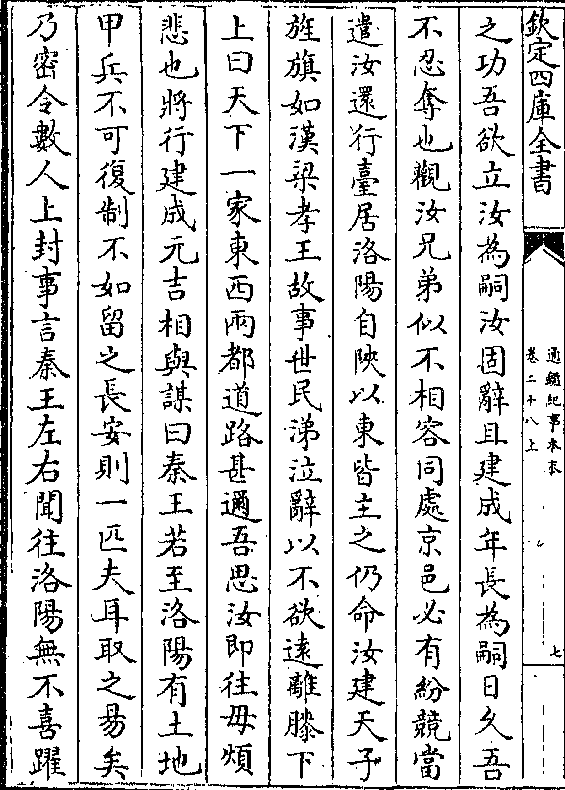 欽定四庫全書
通鑑紀事本末
卷二十八上
七
之功吾欲立汝為嗣汝固辭且建成年長為嗣日久吾
不忍奪也觀汝兄弟似不相容同處京邑必有紛競當
遣汝還行臺居洛陽自陜以東皆主之仍命汝建天子
旌旗如漢梁孝王故事世民涕泣辭以不欲遠離膝下
上曰天下一家東西兩都道路甚邇吾思汝即往毋煩
悲也將行建成元吉相與謀曰秦王若至洛陽有土地
甲兵不可復制不如留之長安則一匹夫耳取之易矣
乃密令數人上封事言秦王左右聞往洛陽無不喜躍